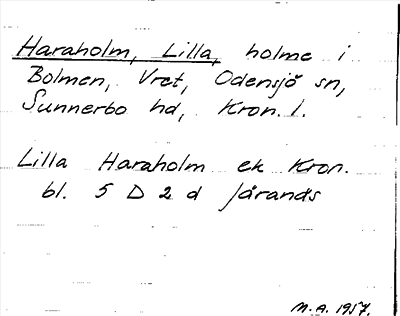 Haraholm, Lilla, holme i
Bolmen, Vret, Odensjö sn,
Sunnerbo hd, Kron. l.
Lilla Haraholm ek Kron.
bl. 5 D 2 d Jårands
M.A. 1957.